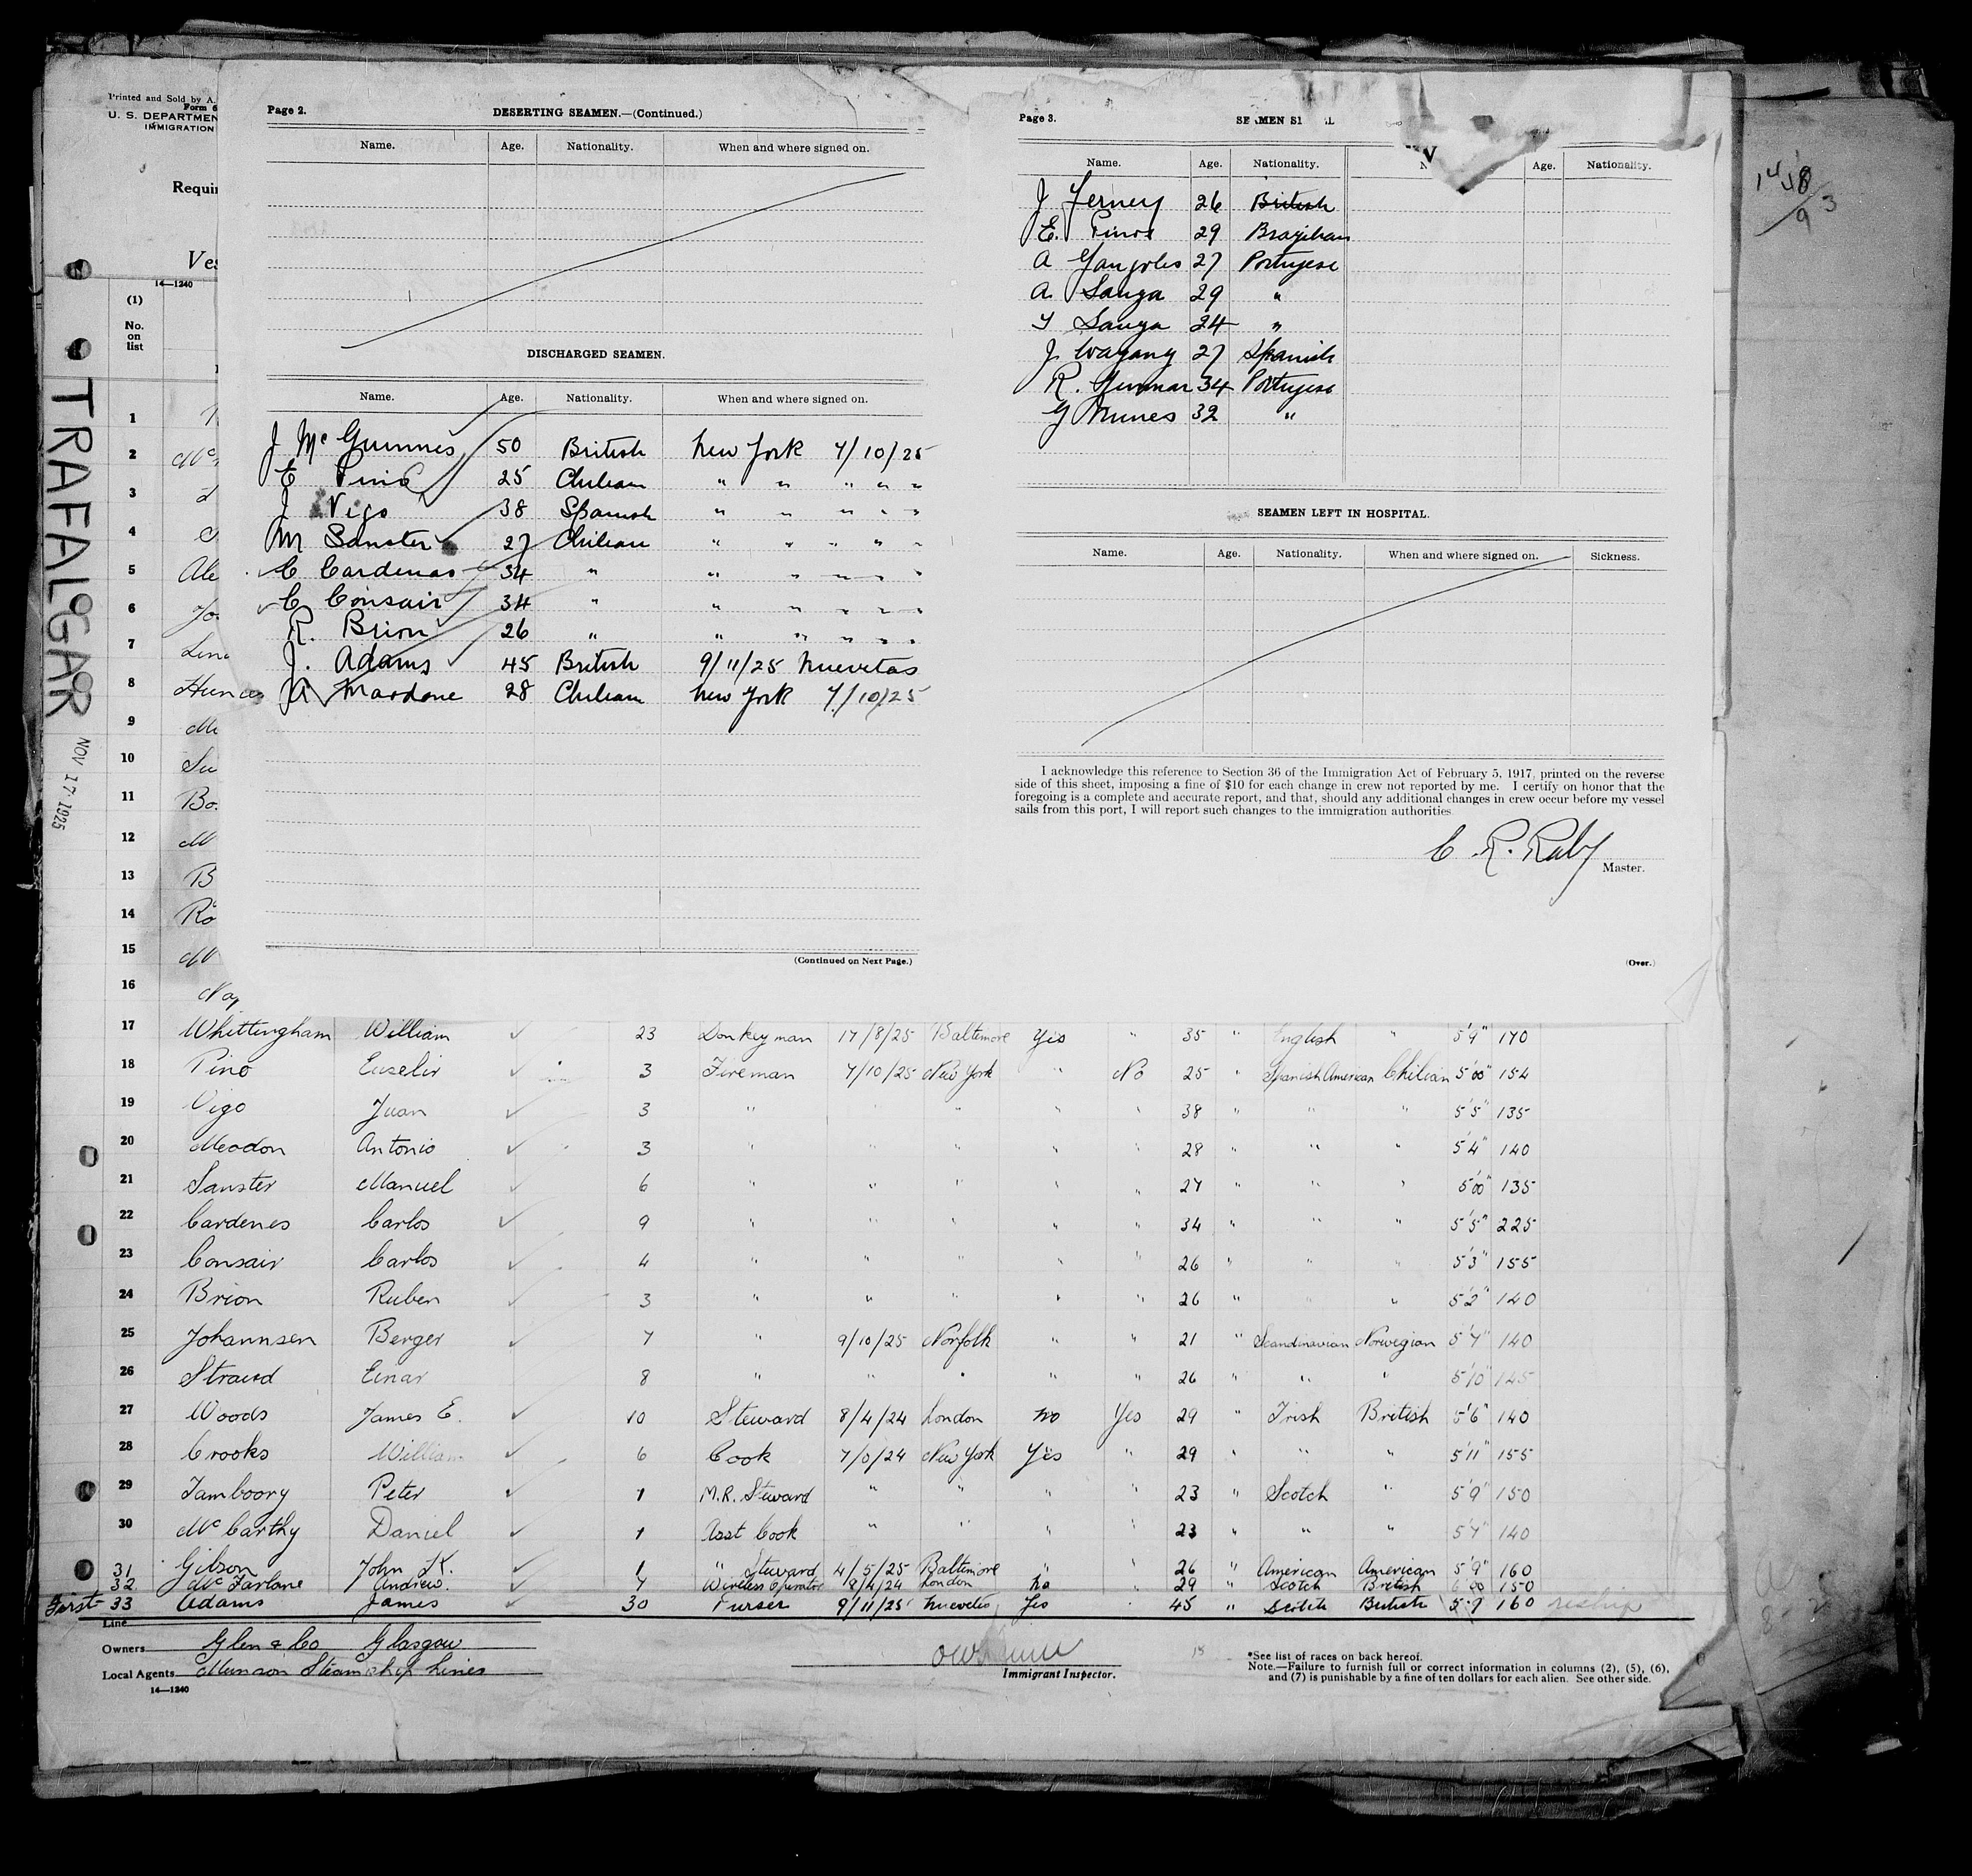 Printed and Sold by A.
Form 6
U. S. DEPARTMEN
IMMIGRATION
Requir
Ves
14—1240
(1)
No.
on
list
TRAFALGAR
NOV 17 1925
Page 2.
DESERTING SEAMEN.—(Continued.)
Name. Age. Nationality. When and where signed on.
DISCHARGED SEAMEN.
Name. Age. Nationality. When and where signed on.
J McGuinnes 50 British New York 7/10/25
E Pino 25 Chilean " " " " "
J Vigo 38 Spanish " " " " "
M Sanster 27 Chilean " " " " "
C Cardenas 34 " " " " " "
C Consair 34 " " " " " "
R. Brion 26 " " " " " "
J. Adams 45 British 9/11/25 Nuevitas
A Mardone 28 Chilean New York 7/10/25
(Continued on Next Page.)
Page 3.
SEAMEN
Name. Age. Nationality. Age. Nationality.
J 26 British
E. 29 Brazilian
A 27 Portugese
A Sauza 29 "
Sauza 24 "
J 27 Spanish
R. 34 Portugese
G Nunes 32 "
SEAMEN LEFT IN HOSPITAL.
Name. Age. Nationality. When and where signed on. Sickness.
I acknowledge this reference to Section 36 of the Immigration Act of February 5, 1917, printed on the reverse
side of this sheet, imposing a fine of $10 for each change in crew not reported by me. I certify on honor that the
foregoing is a complete and accurate report, and that, should any additional changes in crew occur before my vessel
sails from this port, I will report such changes to the immigration authorities
C. R. Raby
Master.
(Over.)
1
2
3
4
5 Ale
6 Jo
7
8
9
10 Su
11 Bo
12
13 B
14 Ro
15
16
17 Whittingham William 23 Donkeyman 17/8/25 Baltimore Yes " 35 " English " 5'9" 170
18 Pino Euselir 3 Fireman 7/10/25 New York " No 25 " Spanish American Chilian 5'00" 154
19 Vigo Juan 3 " " " " 38 " " " 5'5" 135
20 Meodon Antonio 3 " " " " " 28 " " " 5'4" 140
21 Sanster Manuel 6 " " " " " 27 " " " 5'00" 135
22 Cardenes Carlos 9 " " " " " 34 " " " 5'5" 225
23 Consair Carlos 4 " " " " " 26 " " " 5'3" 155
24 Brion Ruben 3 " " " " " 26 " " " 5'2" 140
25 Johannsen Berger 7 " 9/10/25 Norfolk " " 21 " Scandinavian Norwegian 5'7" 140
26 Straud Einar 8 " " " " " 26 " " " 5'10" 145
27 Woods James E. 10 Steward 8/4/24 London No Yes 29 " Irish British 5'6" 140
28 Crooks William 6 Cook 7/0/24 New York Yes " 29 " " " 5'11" 155
29 Tamboory Peter 1 M.R. Steward " " " " 23 " Scotch " 5'9" 150
30 McCarthy Daniel 1 Asst Cook " " " " 23 " " " 5'7" 140
31 Gibson John K. 1 " Steward 4/5/25 Baltimore " " 26 " American American 5'9" 160
32 McFarlane Andrew. 7 Wireless Operator 8/4/24 London No " 29 " Scotch British 6'00 150
First 33 Adams James 30 Purser 9/11/25 Nuevitas Yes 45 " Scotch British 5'9 160 reship
Line
Owners Glen & Co Glasgow
Local Agents Munson Steamship Lines
14—1240
Immigrant Inspector.
*See list of races on back hereof.
Note.—Failure to furnish full or correct information in columns (2), (5), (6),
and (7) is punishable by a fine of ten dollars for each alien. See other side.